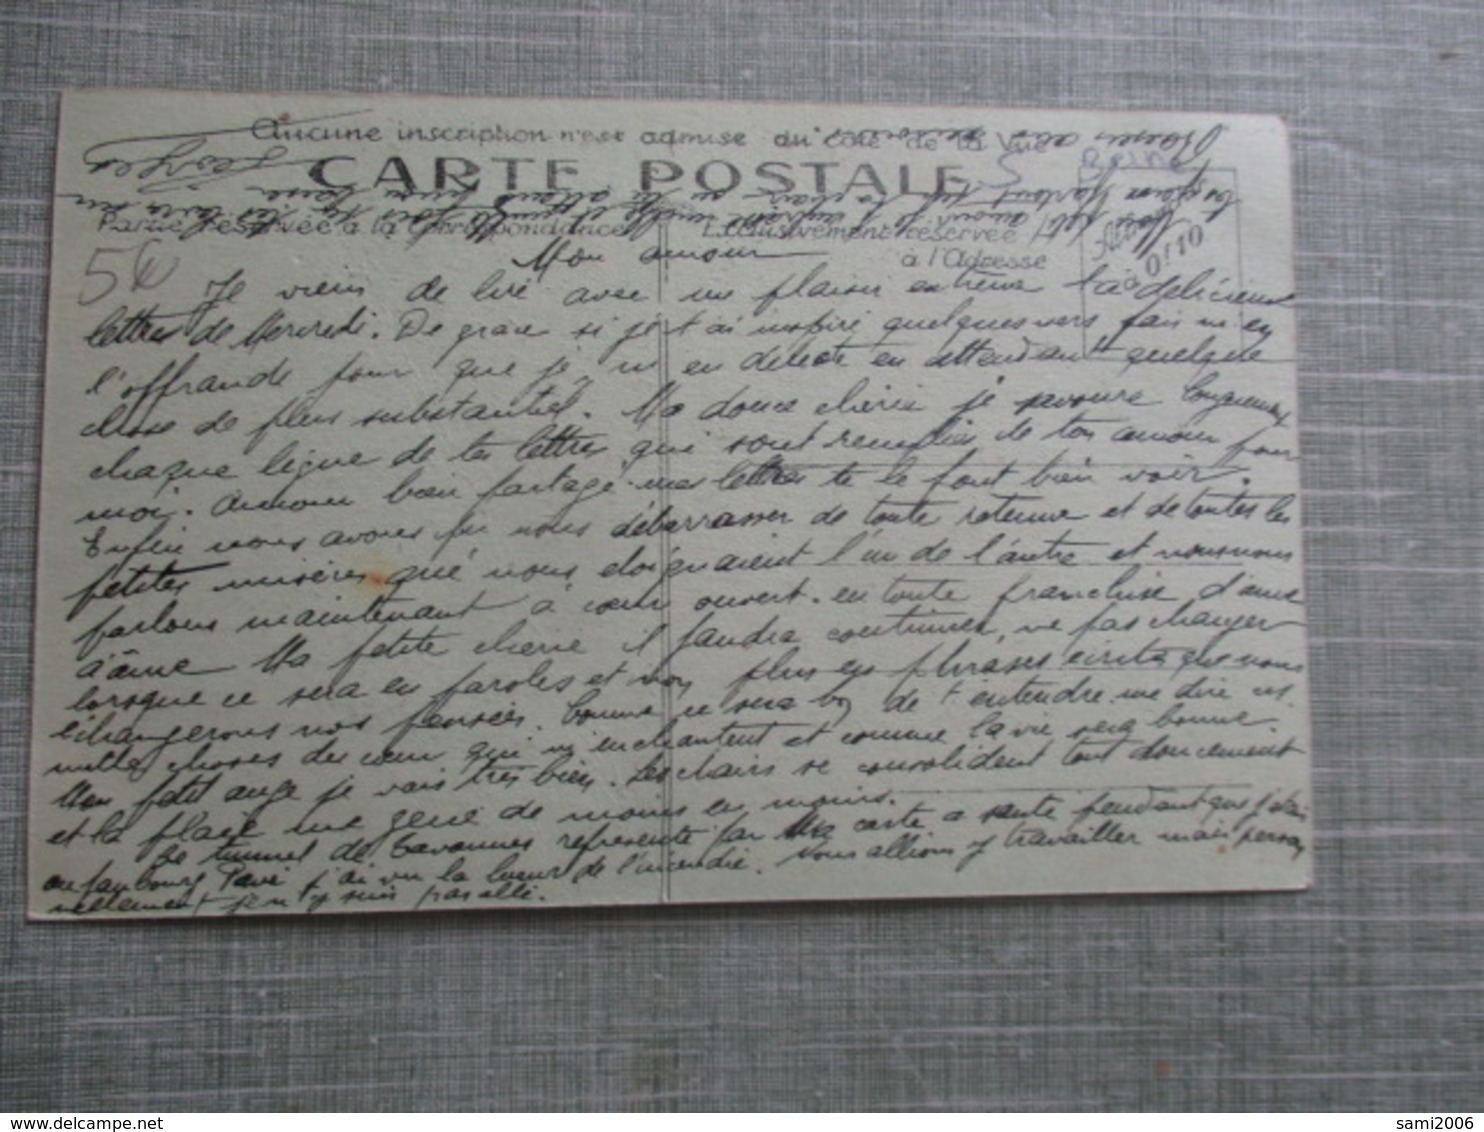 Aucune inscription n'est admise du côté de la Vue
CARTE POSTALE
Partie réservée à la Correspondance
Exclusivement réservée
à l'Adresse
0f10
Mon amour
Je viens de lire avec un plaisir extrême ta délicieuse
lettre de Mercredi. De grace si je t'ai inspiré quelques vers fais m'en
l'offrande pour que je m'en délecte en attendant quelque
chose de plus substantiel. Ma douce chérie je savoure longuement
chaque ligne de tes lettres qui sont remplies de ton amour pour
moi. Amour bien partagé mes lettres te le font bien voir.
Enfin nous avons pu nous débarrasser de toute retenue et de toutes les
petites misères que nous éloignaient l'un de l'autre et nous nous
parlons maintenant à cœur ouvert. en toute franchise d'ame
à âme Ma petite chérie il faudra continuer, ne pas changer
lorsque ce sera en paroles et non plus en phrases écrites que nous
échangerons nos pensées. Comme ce sera bon de t'entendre me dire ces
mille choses du cœur qui m'enchantent et comme la vie sera bonne
Mon petit ange je vais très bien. Les chairs se consolident tout doucement
et la plaie me gene de moins en moins.
Le tunnel de Tavannes représenté par Ma carte a sauté pendant que j'étais
au faubourg Pavé j'ai vu la lueur de l'incendie. Nous allions y travailler mais person
nellement je n'y suis pas allé.
Georges
sami2006